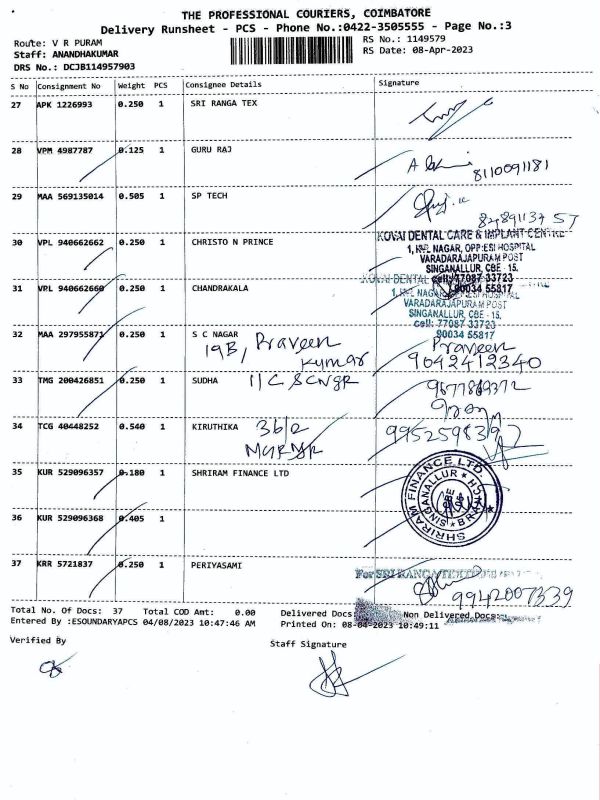 THE PROFESSIONAL COURIERS, COIMBATORE
Delivery Runsheet - PCS - Phone No.:0422-3505555 - Page No.:3
Route: V R PURAM
RS No.: 1149579
Staff: ANANDHAKUMAR
RS Date: 08-Apr-2023
DRS No.: DCJB114957903
S No Consignment No Weight PCS Consignee Details Signature
27 APK 1226993 0.250 1 SRI RANGA TEX
28 VPM 4987787 0.125 1 GURU RAJ
8110091181
29 MAA 569135014 0.505 1 SP TECH
30 VPL 940662662 0.250 1 CHRISTO N PRINCE
KOVAI DENTAL CARE & IMPLANT CENTRE
1, KVL NAGAR, OPP:ESI HOSPITAL
VARADARAJAPURAM POST
SINGANALLUR, CBE - 15.
cell: 77087 33723
90034 55817
31 VPL 940662660 0.250 1 CHANDRAKALA
KOVAI DENTAL
VARADARAJAPURAM POST
SINGANALLUR, CBE - 15.
cell: 77087 33723
90034 55817
32 MAA 297955871 0.250 1 S C NAGAR
19B, Praveen Kumar
Praveen
9042412340
33 TMG 200426851 0.250 1 SUDHA
11C SCNGR
34 TCG 40448252 0.540 1 KIRUTHIKA
36/2
35 KUR 529096357 0.180 1 SHRIRAM FINANCE LTD
SHRIRAM FINANCE LTD.
SINGANALLUR
BRANCH
CBE
36 KUR 529096368 0.405 1
37 KRR 5721837 0.250 1 PERIYASAMI
For SRI RANGA TEX
9942007339
Total No. Of Docs: 37 Total COD Amt: 0.00 Delivered Docs Non Delivered Docs:
Entered By :ESOUNDARYAPCS 04/08/2023 10:47:46 AM Printed On: 08-04-2023 10:49:11
Verified By
Staff Signature